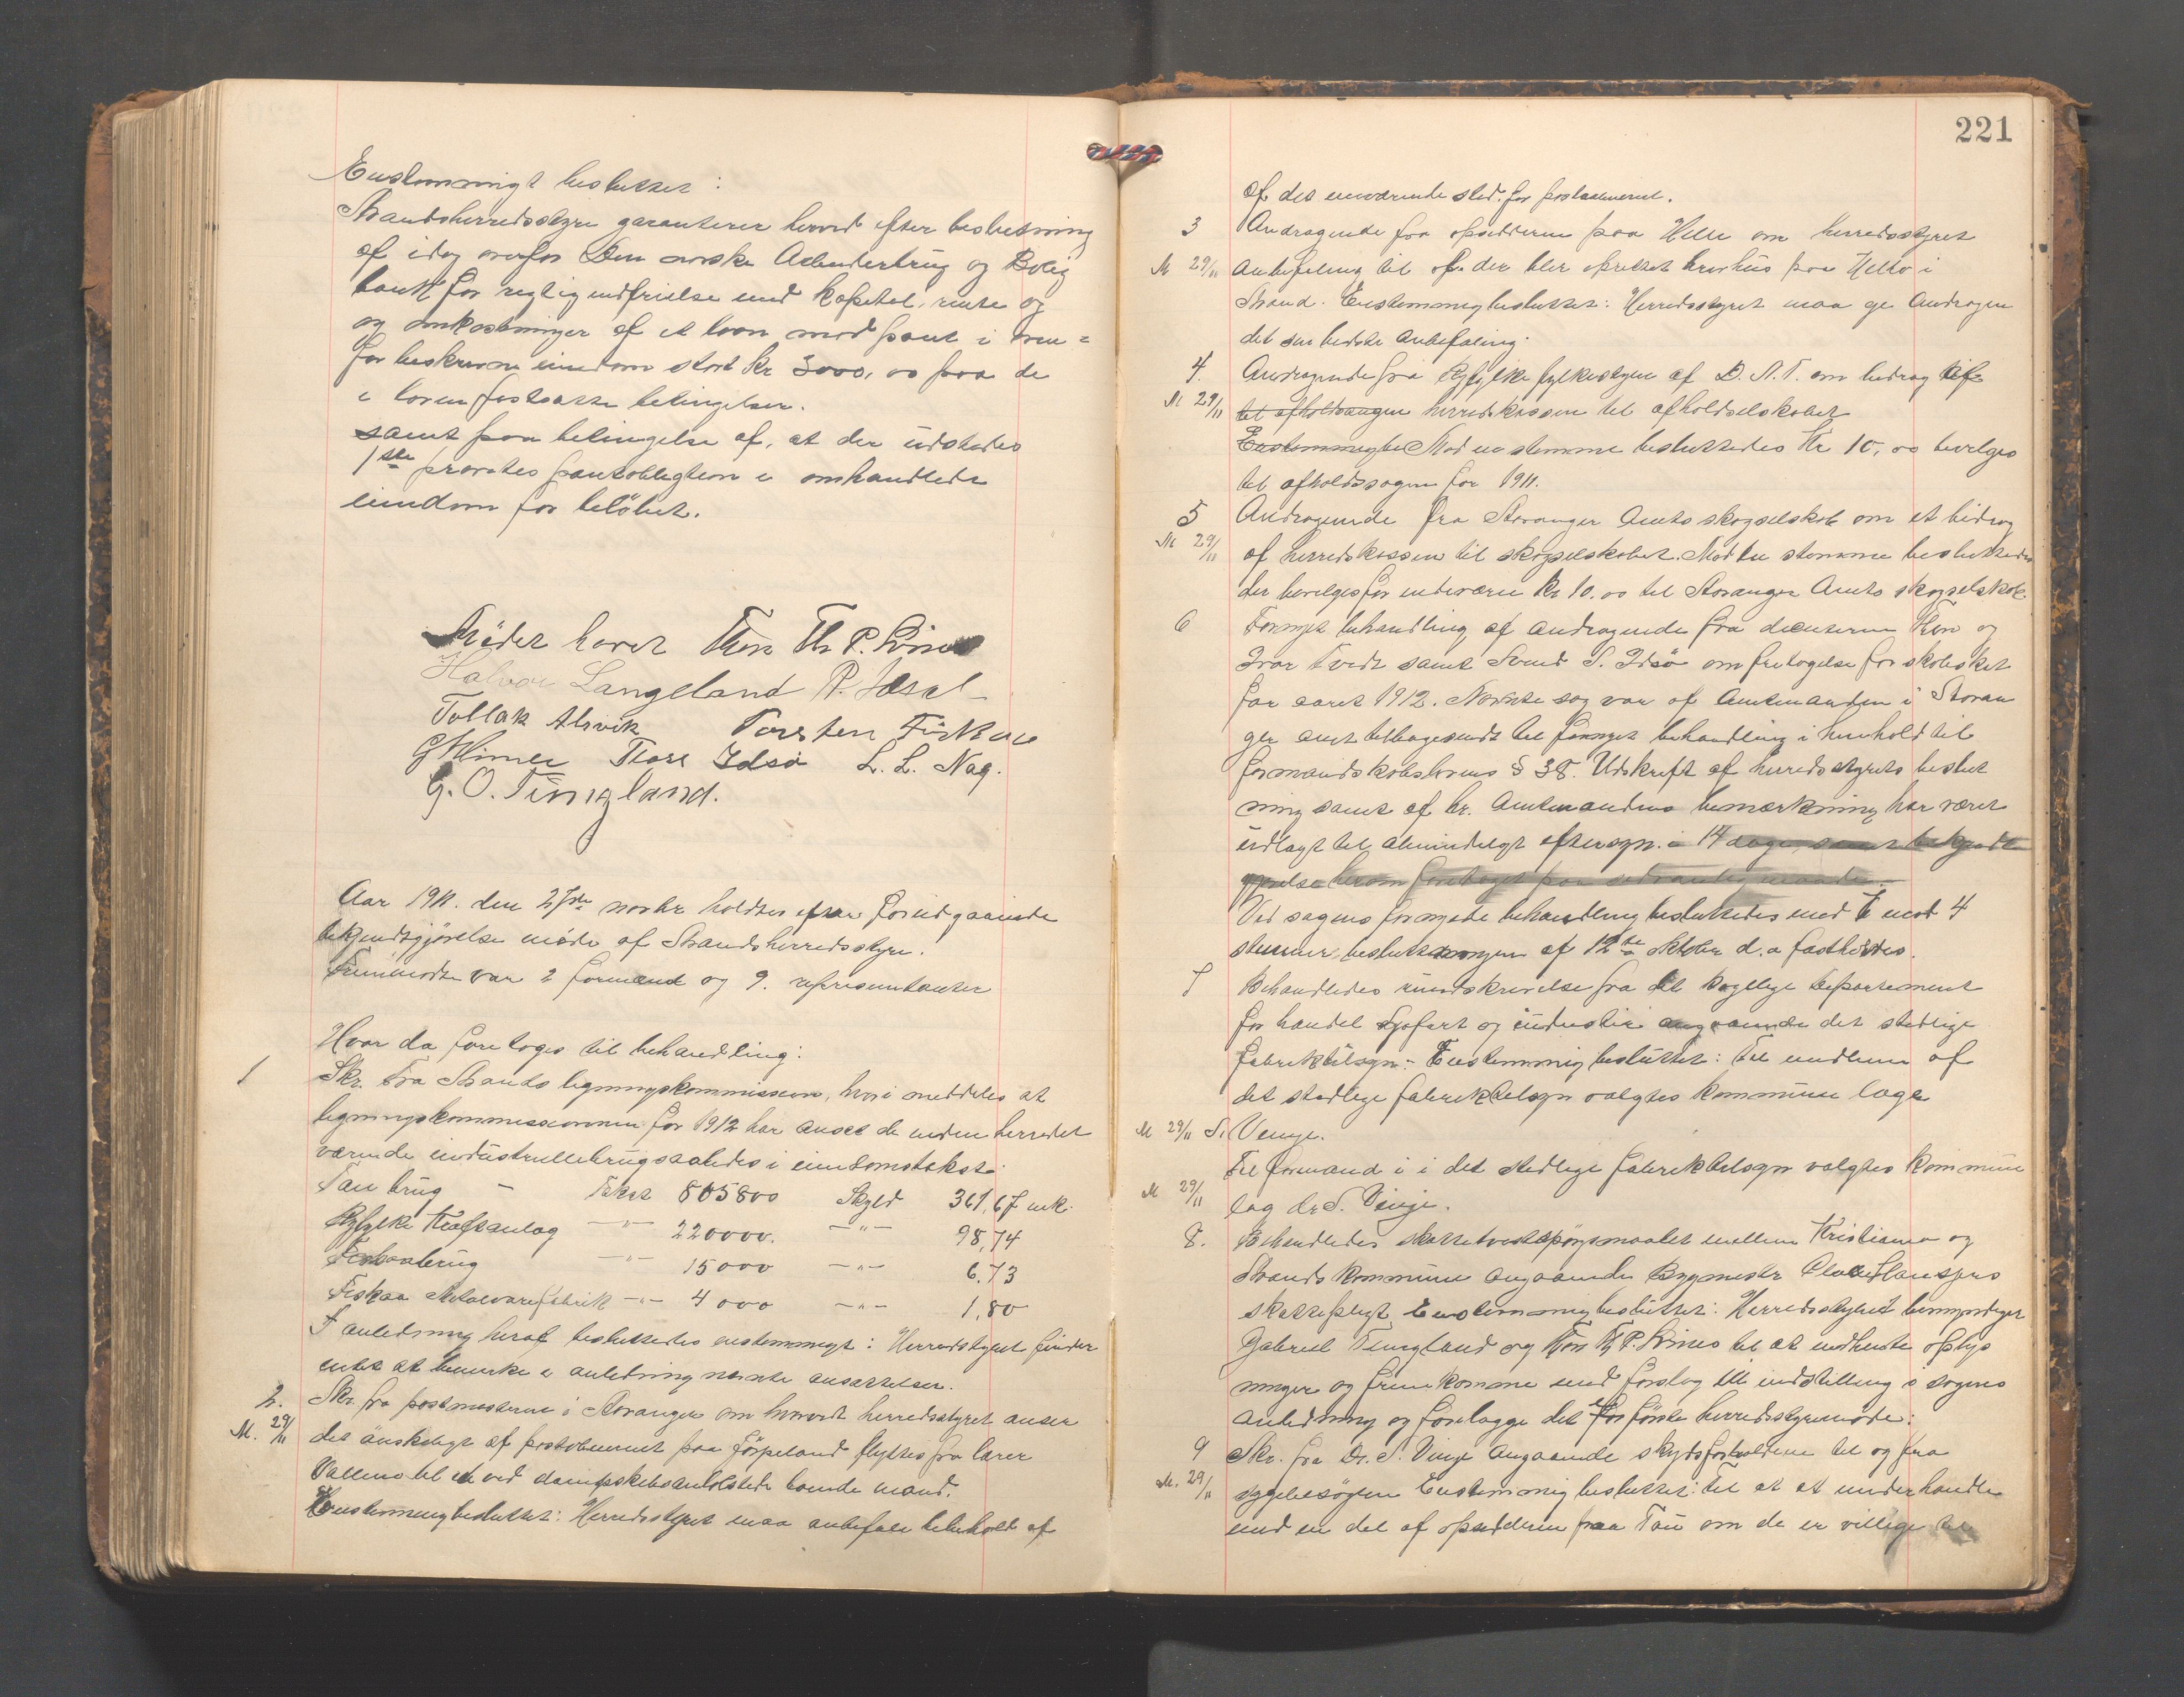 Enstemmigt besluttet:
Strandsherredsstyre garanterer herved efter beslutning
af idag overfor Den norske Arbeiderbrug og Bolig
bank for regtig indfrielse med kapital, rente og
og omkostninger af et laan mod pant i oven=
for beskrevne eiendom stort Kr 3000,00 paa de
i loven fastsatte betingelser.
samt paa betingelse af, at der udstedes
1ste prioritets pantobligtion i omhandlede
eiendom for beløbet.
Mødet hævet Thore Th. P.
Halvor Langeland
Tollak Alsvik Torsten
Tore Idsø L. L. Nag.
G. O. Tungland.
Aar 1911. den 27de novbr holdtes efter forudgaaende
bekjendtgjørelse møde af Strandsherredsstyre.
Fremmødte var 2 formænd og 9. repræsentanter
Hvor da foretoges til behandling:
1 Skr. fra Strands ligningskommission, hvori meddeles at
ligningskommissionen for 1912 har ansat de inden herredet
værende industriellebrug saaledes i eiendomstakst:
Tau brug - Takst 805800 Skyld 361,67 mk.
Ryfylke Kraftanlæg -"- 220000. -"- 98,74
Fiskaabrug -"- 15000 -"- 6,73
Fiskaa Metalvarefabrik -"- 4000 -"- 1,80
I anledning heraf besluttedes enstemmigt: Herredsstyret finder
intet at bemerke i anledning nævnte ansættelser.
2. Skr. fra postmesteren i Stavanger om hvorvidt herredsstyret anser
M. 29/11 det ønskeligt at postaabneriet paa Jørpeland flyttes fra lærer
Valleno til en ved dampskibsanløbstedet boende mand.
Enstemmig besluttet: Herredsstyret maa anbefale bibehold af
221
af det nuværende sted for postaabneriet.
3 Andragende fra opsidderne paa Helle om herredsstyrets
M 29/11 anbefaling til at der blir oprettet brevhus paa Helle i
Strand. Enstemmig besluttet: Herredsstyret maa gi Andragen
det sin bedste anbefaling.
4. Andragende fra Ryfylke fylkesstyre af D. N. T. om bidrag
M 29/11 til afholdssagen herredskassen til afholdselskabet
Enstemmigbe Mod en stemme besluttedes Kr 10,00 bevilges
til afholdssagen for 1911.
5 Andragende fra Stavanger Amts skogselskab om et bidrag
M 29/11 af herredskassen til skogselskabet. Mod en stemme besluttedes
der bevilges for Kr 10.00 til Stavanger Amts skogselskab
6 Fornyet behandling af andragende fra docenterne Thore og
Ivar Tvedt samt Svend S. Idsø om fritagelse for skoleskat
for aaret 1912. Nævnte sag var af Amtmanden i Stavan
ger amt tilbagesendt til fornyet behandling i henhold til
formandskabslovens § 38. Udskrift af herredsstyrets beslut
ning samt af hr. Amtmandens bemærkning har været
udlagt til almindelgt eftersyn. i 14 dage, samt bekjendt
gjørelse herom foretaget paa sedvanlig maade.
Ved sagens fornyede behandling besluttedes med 6 mod 4
stemmer, beslutningen af 12te oktober d.a fastholdes.
7 Behandledes rundskrivelse fra det kgellge departement
for handel sjøfart og industri angaaende det stedlige
fabriktilsyn: Enstemmig besluttet: Til medlem af
det stedlige fabriktilsyn valgtes kommune læge
M 29/11 S. Vinje.
Til formand i i det stedlige fabriktilsyn valgtes kommune
M 29/11 læg dr S. Vinje.
8. Behandledes skattetvistspørgsmaalet mellem Kristiania og
Strands kommune angaaende Bygmester
skattepligt. Enstemmig besluttet: Herredsstyret bemyndiger
Gabriel Tungland og Thore Th P. til at indhente oplys
ninger og fremkomme med forslag til indstilling i sagens
anledning og forelægge det for første herredsstyremøde.
9 Skr. fra Dr. S. Vinje angaaende skydsforholdene til og fra
M. 29/11 sygebesøgene Enstemmig besluttet: til at at underhandle
med en del af opsidderne paa Tau om de er villige til